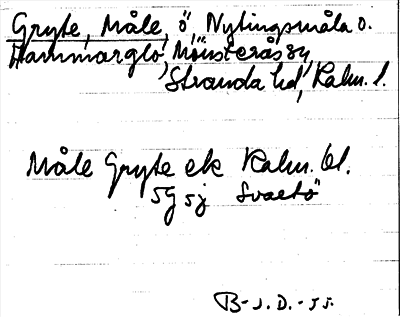 Gryte, Måle, ö, Nytingsmåla o.
Hammarglo, Mönsterås sn,
Stranda hd, Kalm. l.
Måle Gryte ek Kalm. bl.
5G 5j Svartö
B-J.D.-55.